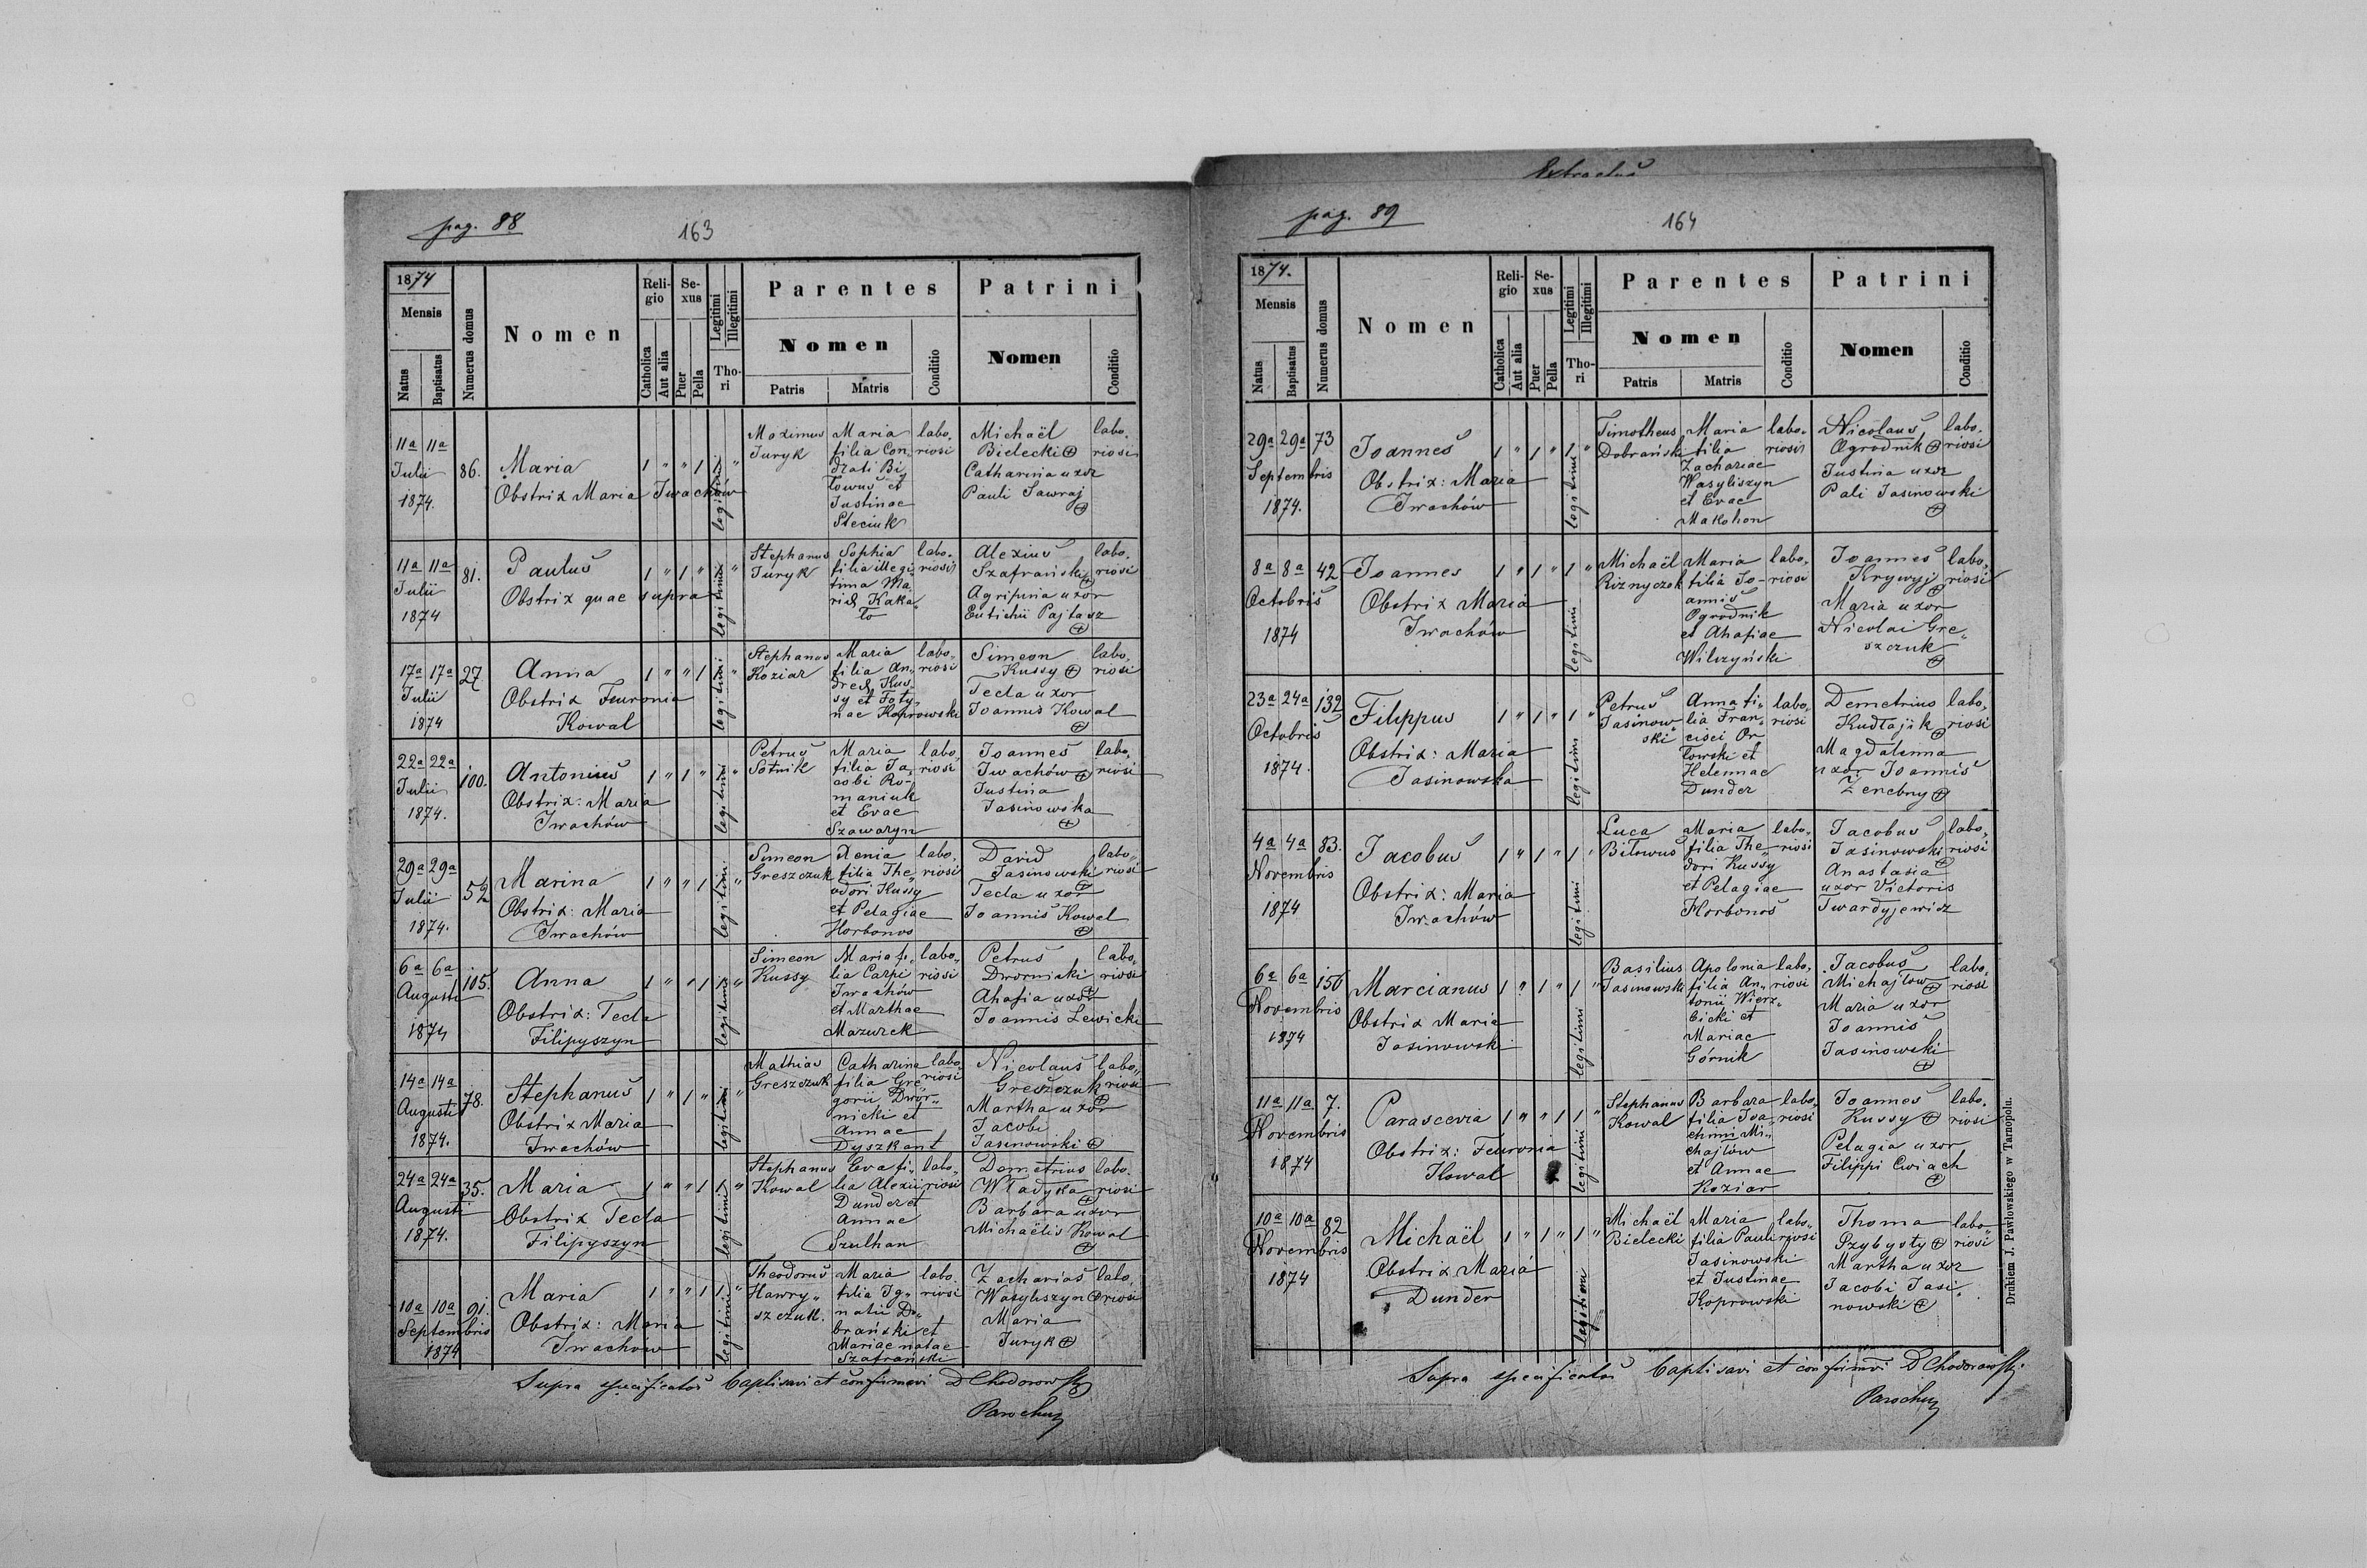 pag. 88
163
1874
Mensis
Natus
Baptisatus
Numerus domus
Nomen
Religio
Catholica
Aut alia
Sexus
Puer
Pella
Legitimi
Illegitimi
Thori
Parentes
Nomen
Patris
Matris
Conditio
Patrini
Nomen
Conditio
11a 11a Julii 1874. 86.
Maria
Obstrix Maria Iwachów
1 " " 1 1 "
legitimi
Maximus
Juryk
Maria
filia Con-
drati Bi-
łowus et
Justinae
Steciuk
labo-
riosi
Michaël
Bielecki
Catharina uxor
Pauli Sawraj
labo.
riosi
11a 11a Julii 1874 81.
Paulus
Obstrix quae supra
1 " 1 " 1 "
legitimi
Stephanus
Juryk
Sophia
filia illegi-
tima Ma-
riae Kaka-
ło
labo.
riosi
Alexius
Szafrański
Agripina uxor
Eutichii Pajtasz
labo.
riosi
17a 17a Julii 1874 27
Anna
Obstrix Feuronia
Kowal
1 " " 1 1 "
legitimi
Stephanus
Koziar
Maria
filia An-
dreae Kus-
sy et Foty-
nae Koprowski
labo-
riosi
Simeon
Kussy
Tecla uxor
Joannis Kowal
labo.
riosi
22a 22a Julii 1874. 100.
Antonius
Obstrix: Maria
Iwachów
1 " 1 " 1 "
legitimi
Petrus
Sotnik
Maria
filia Ja-
cobi Ro-
maniuk
et Evae
Szawaryn
labo
riosi
Joannes
Iwachów
Justina
Jasinowska
labo.
riosi
29a 29a Julii 1874. 52
Marina
Obstrix: Maria
Iwachów
1 " " 1 1 "
legitimi
Simeon
Greszczuk
Xenia
filia The-
odori Kussy
et Pelagiae
Horbonos
labo.
riosi
David
Jasinowski
Tecla uxor
Joannis Kowal
labo-
riosi
6a 6a Augusti 1874 105.
Anna
Obstrix: Tecla
Filipyszyn
1 " " 1 1 "
legitimi
Simeon
Kussy
Maria fi-
lia Carpi
Iwachów
et Marthae
Mazurek
labo-
riosi
Petrus
Dwornicki
Ahafia uxor
Joannis Lewicki
labo-
riosi
14a 14a Augusti 1874. 78.
Stephanus
Obstrix Maria
Iwachów
1 " 1 " 1 "
legitimi
Mathias
Greszczuk
Catharina
filia Gre-
gorii Dwor-
nicki et
Annae
Dyszkant
labo-
riosi
Nicolaus
Greszczuk
Martha uxor
Jacobi
Jasinowski
labo-
riosi
24a 24a Augusti 1874. 35.
Maria
Obstrix Tecla
Filipyszyn
1 " " 1 1 "
legitimi
Stephanus
Kowal
Eva fi-
lia Alexii
Dunder et
Annae
Szulhan
labo-
riosi
Demetrius
Władyka
Barbara uxor
Michaëlis Kowal
labo.
riosi
10a 10a Septembris 1874 91.
Maria
Obstrix: Maria
Iwachów
1 " " 1 1 "
legitimi
Theodorus
Hawry-
szczuk.
Maria
filia Ig-
natii Do-
brański et
Mariae natae
Szafrański
labo.
riosi
Zacharias
Wasyliszyn
Maria
Juryk
labo.
riosi
Supra specificatos baptisavi et confirmavi D Chodorowski
Parochus
Extractus
pag. 89
164
1874.
Mensis
Natus
Baptisatus
Numerus domus
Nomen
Religio
Catholica
Aut alia
Sexus
Puer
Pella
Legitimi
Illegitimi
Thori
Parentes
Nomen
Patris
Matris
Conditio
Patrini
Nomen
Conditio
29a 29a Septembris 1874. 73
Joannes
Obstrix: Maria
Iwachów
1 " 1 " 1 "
legitimi
Timotheus
Dobrański
Maria
filia
Zachariae
Wasyliszyn
et Evae
Makohon
labo.
riosi
Nicolaus
Ogrodnik
Justina uxor
Pali Jasinowski
labo.
riosi
8a 8a Octobris 1874 42
Joannes
Obstrix Maria
Iwachów
1 " 1 " 1 "
legitimi
Michaël
Riznyczok
Maria
filia Jo-
annis
Ogrodnik
et Ahafiae
Wilczyński
labo.
riosi
Joannes
Krywyj
Maria uxor
Nicolai Gre-
szczuk
labo.
riosi
23a 24a Octobris 1874. 132
Filippus
Obstrix: Maria
Jasinowska
1 " 1 " 1 "
legitimi
Petrus
Jasinow-
ski
Anna fi-
lia Fran-
cisci Or
łowski et
Helennae
Dunder
labo.
riosi
Demetrius
Kudłajik
Magdalenna
uxor Joannis
Zerebny
labo.
riosi
4a 4a Novembris 1874 83.
Jacobus
Obstrix: Maria
Iwachów
1 " 1 " 1 "
legitimi
Luca
Biłowus
Maria
filia The-
dori Kussy
et Pelagiae
Horbonos
labo-
riosi
Jacobus
Jasinowski
Anastasia
uxor Victoris
Twardyjewicz
labo-
riosi
6a 6a Novembris 1874 156
Marcianus
Obstrix Maria
Jasinowski
1 " 1 " 1 "
legitimi
Basilius
Jasinowski
Apolonia
filia An-
tonii Wierz-
bicki et
Mariae
Górnik
labo.
riosi
Jacobus
Michajłow
Maria uxor
Joannis
Jasinowski
labo.
riosi
11a 11a Novembris 1874 7.
Parascevia
Obstrix: Feuronia
Kowal
1 " " 1 1 "
legitimi
Stephanus
Kowal
Barbara
filia Joa-
chimi Mi-
chajłów
et Annae
Koziar
labo-
riosi
Joannes
Kussy
Pelagia uxor
Filippi Cwiach
labo.
riosi
10a 10a Novembris 1874 82
Michaël
Obstrix Maria
Dunder
1 " 1 " 1 "
legitimi
Michaël
Bielecki
Maria
filia Pauli
Jasinowski
et Justinae
Koprowski
labo-
riosi
Thoma
Przybysty
Martha uxor
Jacobi Jasi-
nowski
labo-
riosi
Supra specificatos baptisavi et confirmavi D Chodorowski
Parochus
Drukiem J. Pawłowskiego w Tarnopolu.